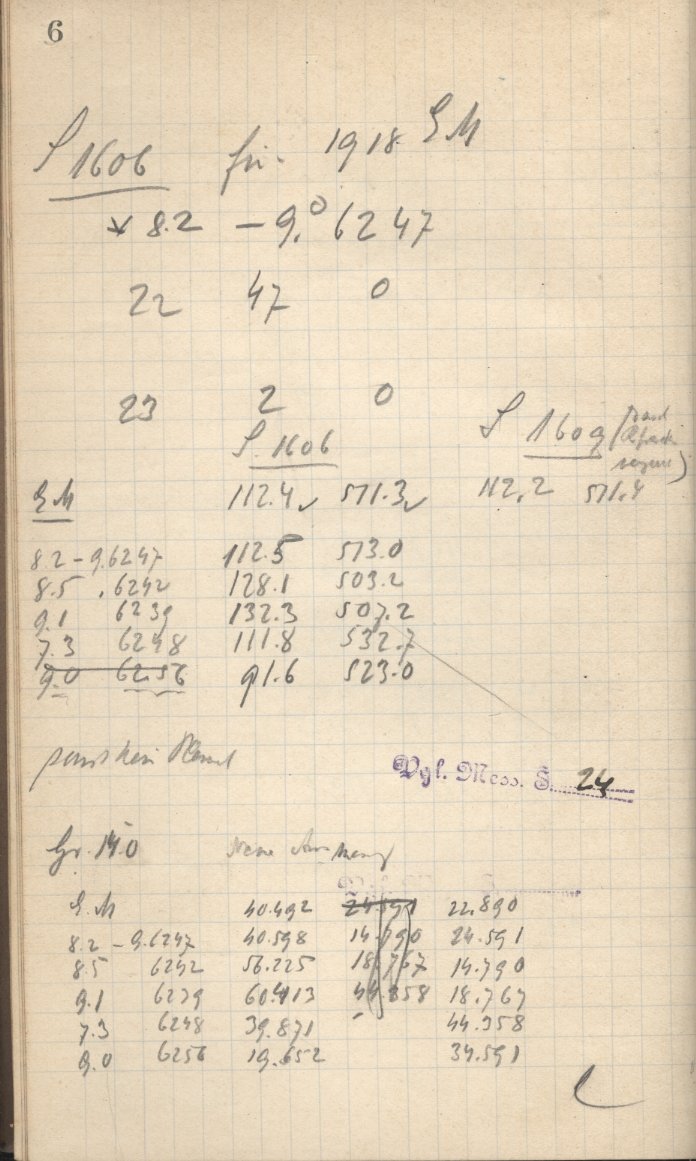 6
S 1606 für 1918 EM
* 8.2 −9.°6247
22 47 0
23 2 0
S. 1606 S 1609
EM 112.4 ✓ 571.3 ✓ 112.2 571.4
8.2 − 9.6247 112.5 573.0
8.5 .6242 128.1 503.2
9.1 6239 132.3 507.2
7.3 6248 111.8 532.7
9.0 6256 91.6 523.0
sonst kein
Vgl. Mess. S. 24
Gr. 14.0 Neue
E.M 40.492 24.591 22.890
8.2 − 9.6247 40.598 14.790 24.591
8.5 6242 56.225 18.767 14.790
9.1 6239 60.413 44.358 18.767
7.3 6248 39.871 44.358
9.0 6256 19.652 34.591